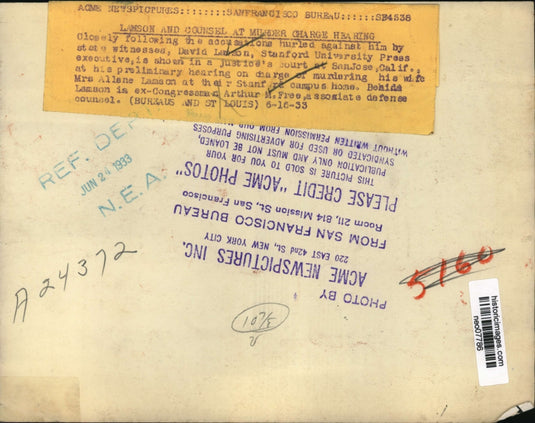 ACME NEWSPICTURES::::::::SANFRANCISCO BUREAU::::::SF4538
LAMSON AND COUNSEL AT MURDER CHARGE HEARING
Closely following the accusations hurled against him by
state witnesses, David Lamson, Stanford University Press
executive, is shown in a justice's court at SanJose, Calif.,
at his preliminary hearing on charge of murdering his wife
Mrs Allene Lamson at their Stanford campus home. Behind
Lamson is ex-Congressman Arthur M. Free, associate defense
counsel. (BUREAUS AND ST LOUIS) 6-16-33
REF. DEP
JUN 24 1933
N.E.A.
PHOTO BY
ACME NEWSPICTURES INC.
220 EAST 42nd ST., NEW YORK CITY
FROM SAN FRANCISCO BUREAU
Room 211, 814 Mission St., San Francisco
PLEASE CREDIT "ACME PHOTOS"
THIS PICTURE IS SOLD TO YOU FOR YOUR
PUBLICATION ONLY AND MUST NOT BE LOANED,
SYNDICATED OR USED FOR ADVERTISING PURPOSES
WITHOUT WRITTEN PERMISSION FROM OUR
A24372
5160
historicimages.com
neo07786